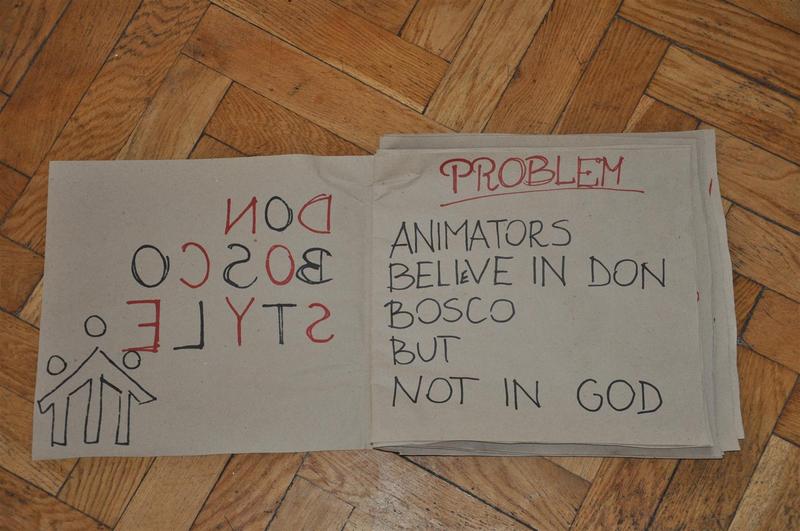 DON
BOSCO
STYLE
PROBLEM
ANIMATORS
BELIEVE IN DON
BOSCO
BUT
NOT IN GOD